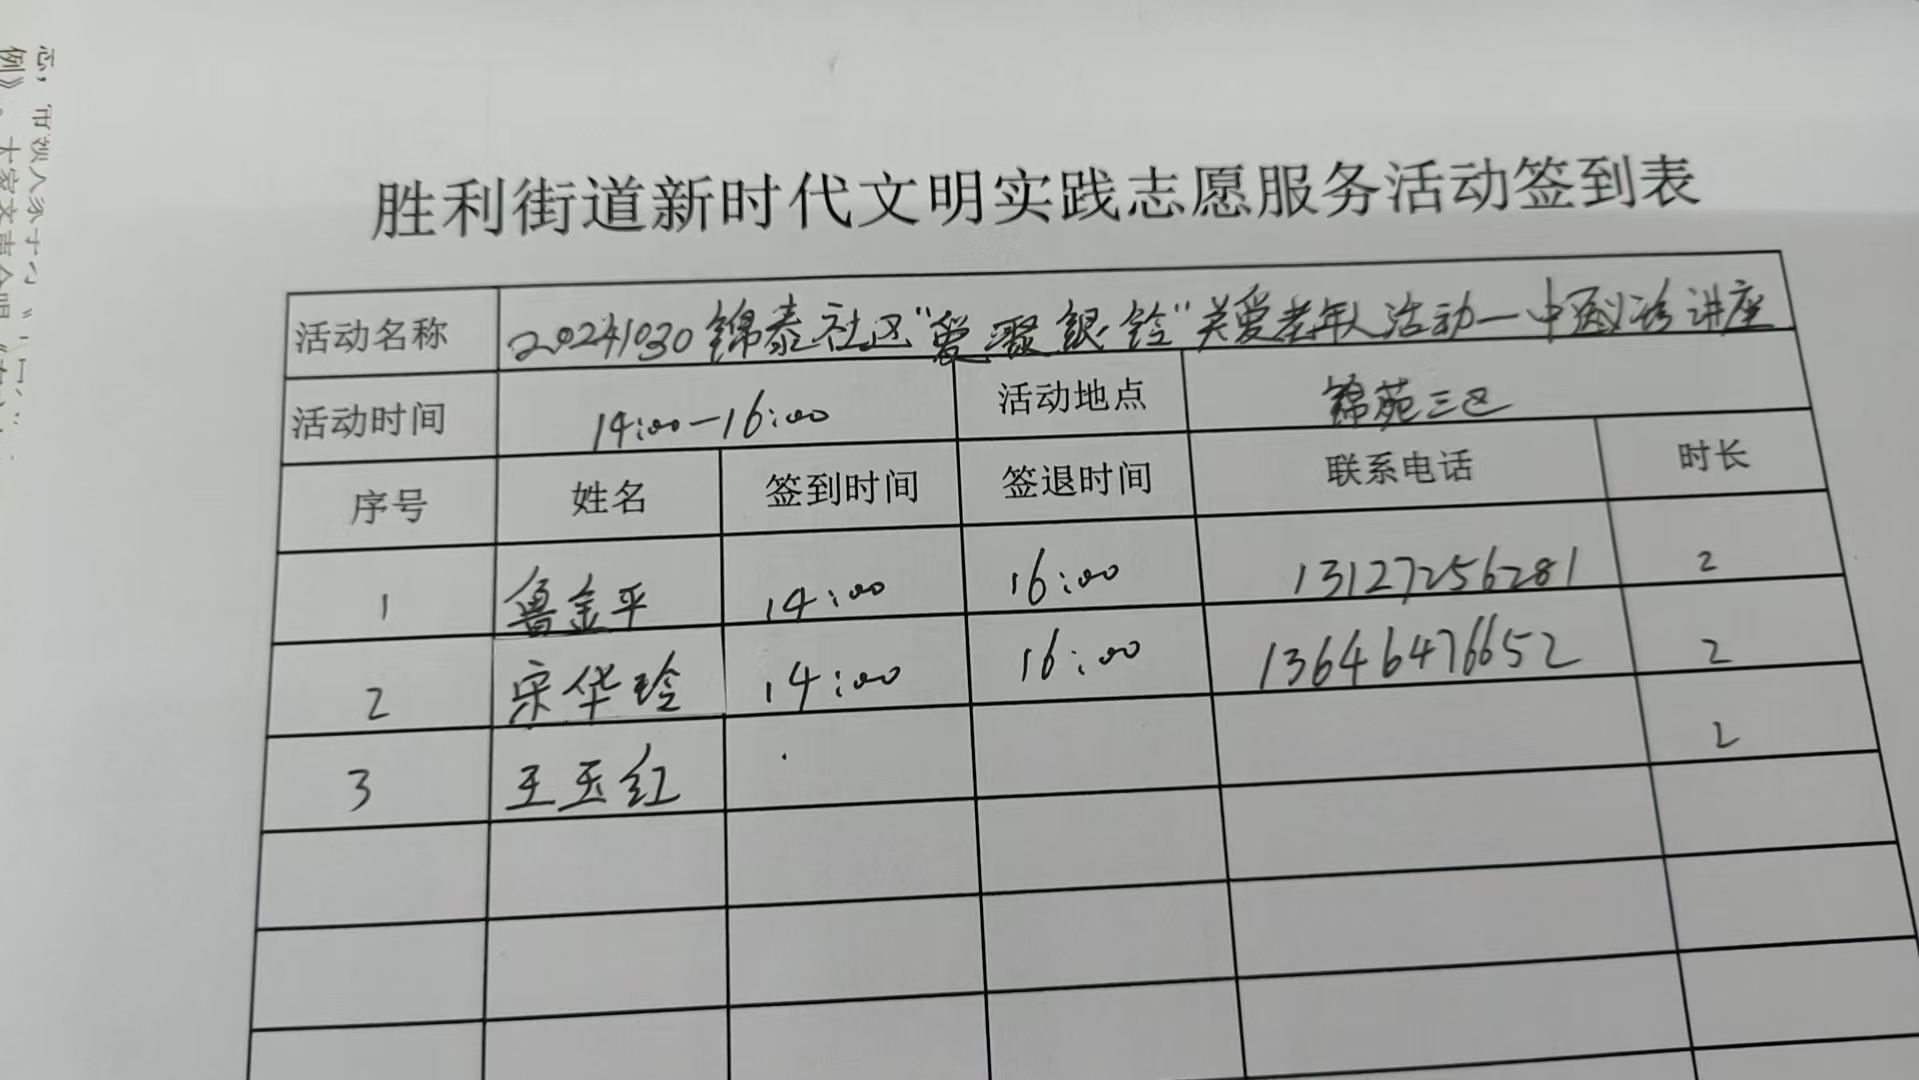 胜利街道新时代文明实践志愿服务活动签到表
活动名称 20241030锦泰社区"爱聚银铃"关爱老年人活动一中医义诊讲座
活动时间 14:00-16:00 活动地点 锦苑三区
序号 姓名 签到时间 签退时间 联系电话 时长
1 鲁金平 14:00 16:00 13127256281 2
2 宋华玲 14:00 16:00 13646476652 2
3 王玉红 2